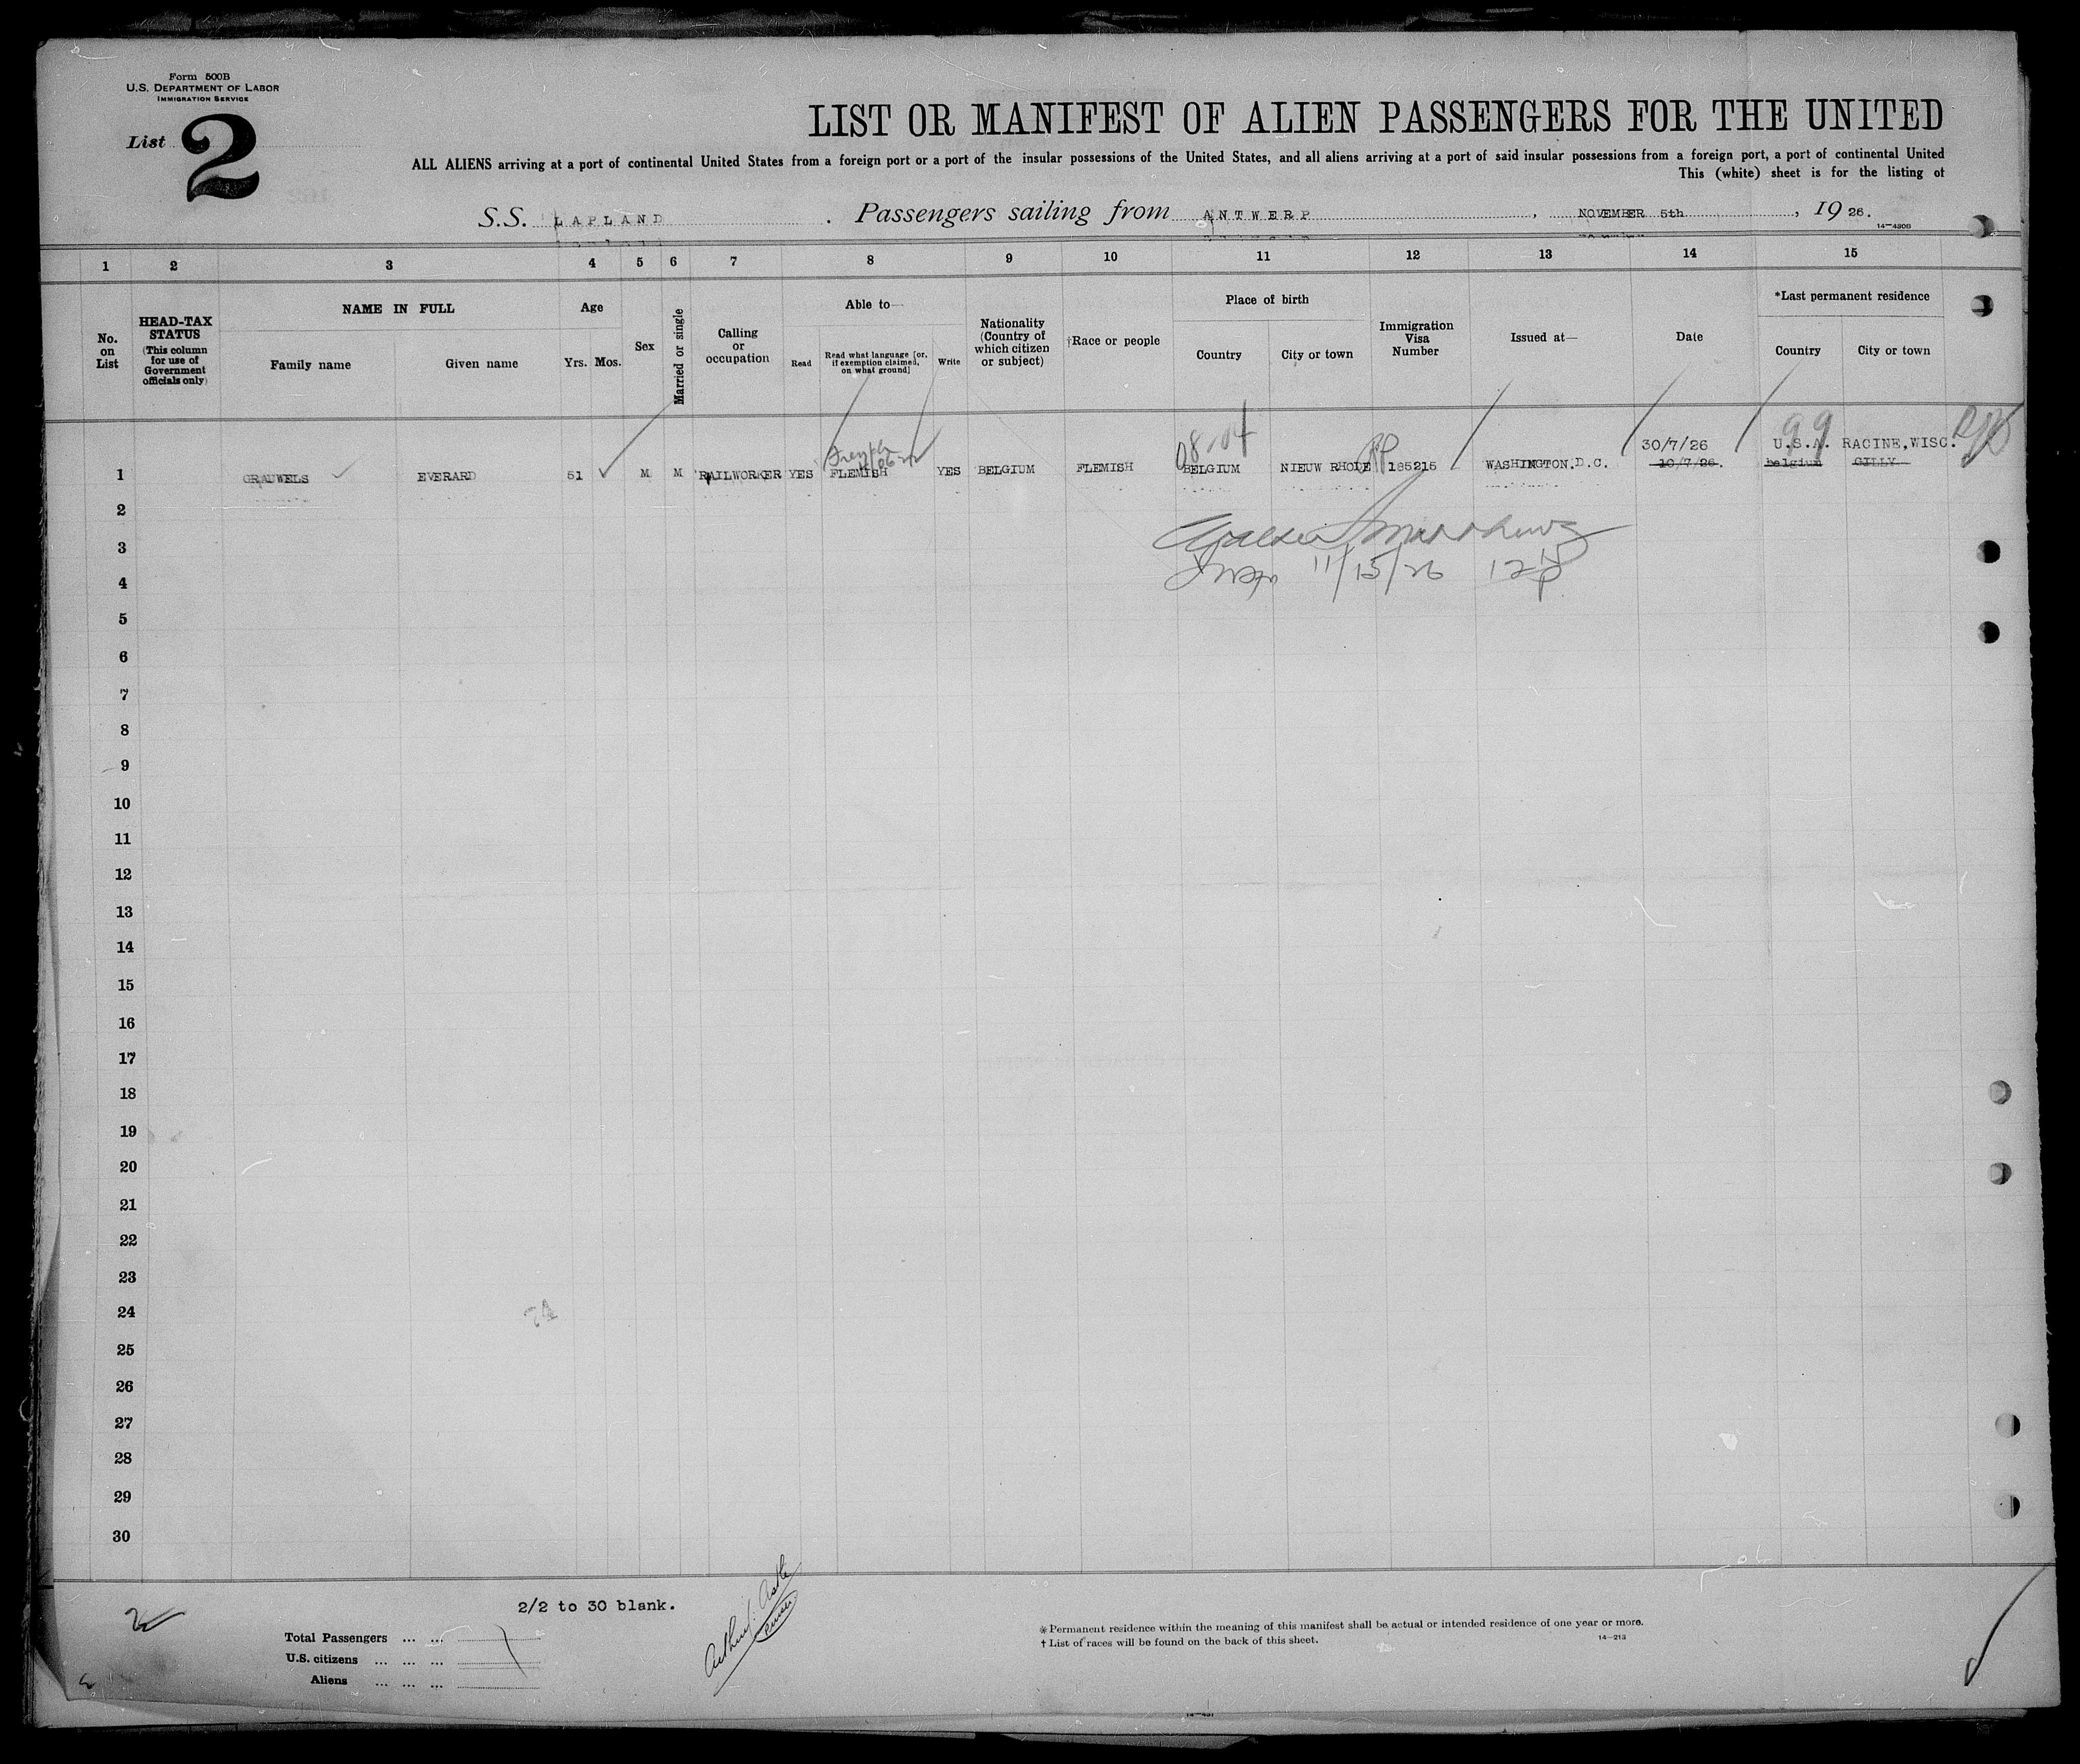 Form 500B
U.S. DEPARTMENT OF LABOR
IMMIGRATION SERVICE
List 2
LIST OR MANIFEST OF ALIEN PASSENGERS FOR THE UNITED
ALL ALIENS arriving at a port of continental United States from a foreign port or a port of the insular possessions of the United States, and all aliens arriving at a port of said insular possessions from a foreign port, a port of continental United
This (white) sheet is for the listing of
S.S. LAPLAND. Passengers sailing from ANTWERP, NOVEMBER 5th, 1926.
14-420B
1 2 3 4 5 6 7 8 9 10 11 12 13 14 15
No. on List
HEAD-TAX STATUS (This column for use of Government officials only)
NAME IN FULL
Family name Given name
Age
Yrs. Mos.
Sex
Married or single
Calling or occupation
Able to—
Read
Read what language [or, if exemption claimed, on what ground]
Write
Nationality (Country of which citizen or subject)
†Race or people
Place of birth
Country City or town
Immigration Visa Number
Issued at—
Date
*Last permanent residence
Country City or town
08-04 99
30/7/26 U.S.A. RACINE,WISC.
1 GRAUWELS EVERARD 51 M M RAILWORKER YES FLEMISH YES BELGIUM FLEMISH BELGIUM NIEUW RHODE RP 185215 WASHINGTON.D.C. 10/7/26. belgium GILLY
2
3
4
11/15/26
5
6
7
8
9
10
11
12
13
14
15
16
17
18
19
20
21
22
23
24
25
26
27
28
29
30
2/2 to 30 blank.
Total Passengers ... ...
U.S. citizens ... ... ...
Aliens ... ... ...
* Permanent residence within the meaning of this manifest shall be actual or intended residence of one year or more.
† List of races will be found on the back of this sheet.
14-213